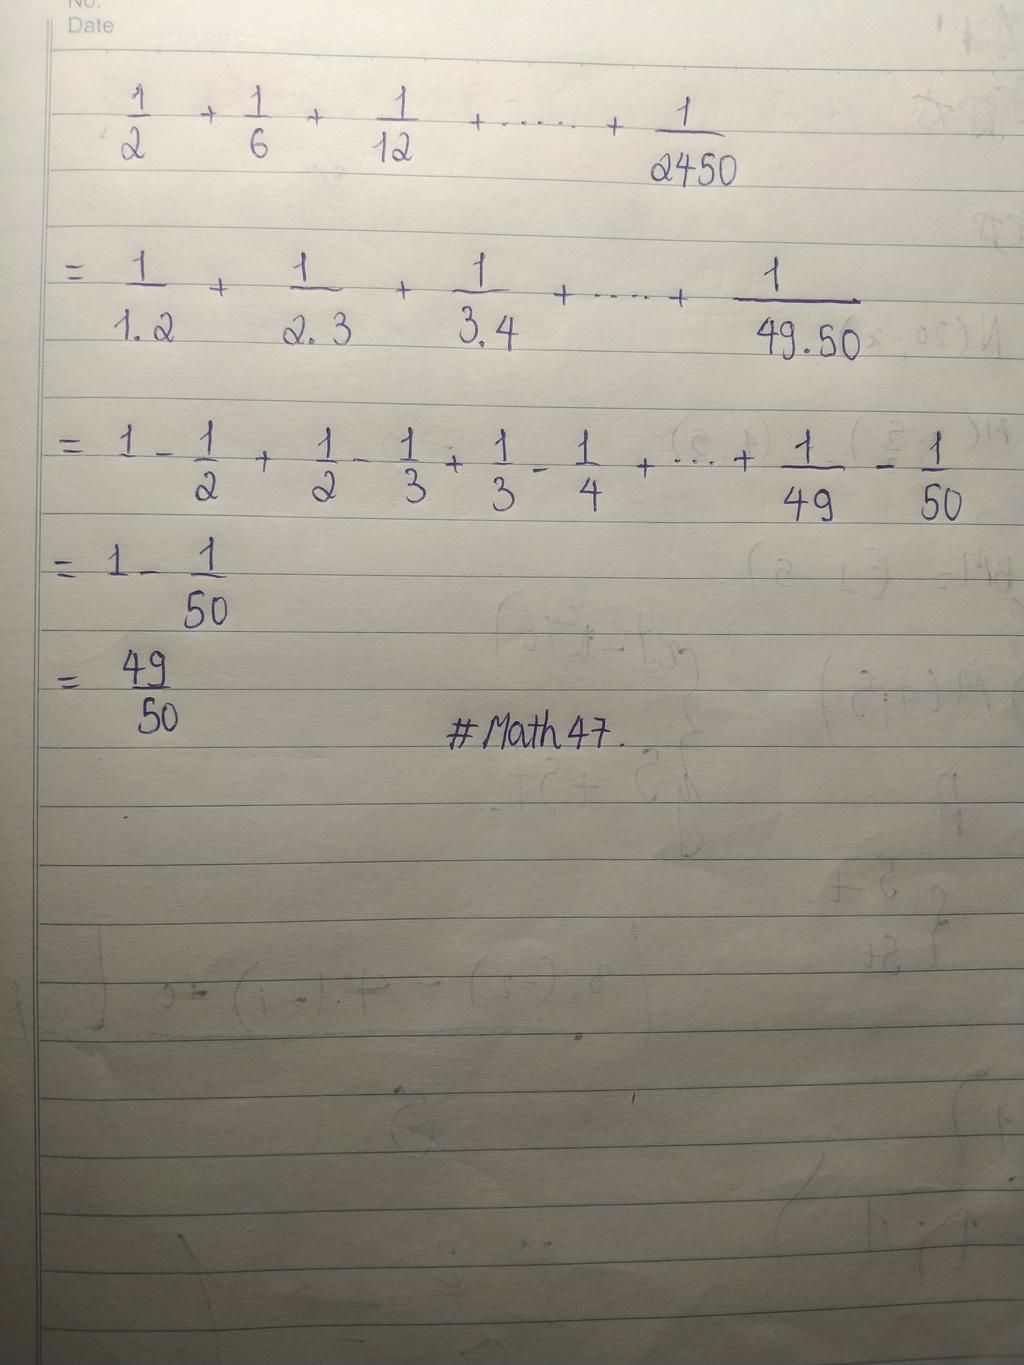 No.
Date
1/2 + 1/6 + 1/12 + ..... + 1/2450
= 1/1.2 + 1/2.3 + 1/3.4 + ..... + 1/49.50
= 1 - 1/2 + 1/2 - 1/3 + 1/3 - 1/4 + ... + 1/49 - 1/50
= 1 - 1/50
= 49/50
#Math47.